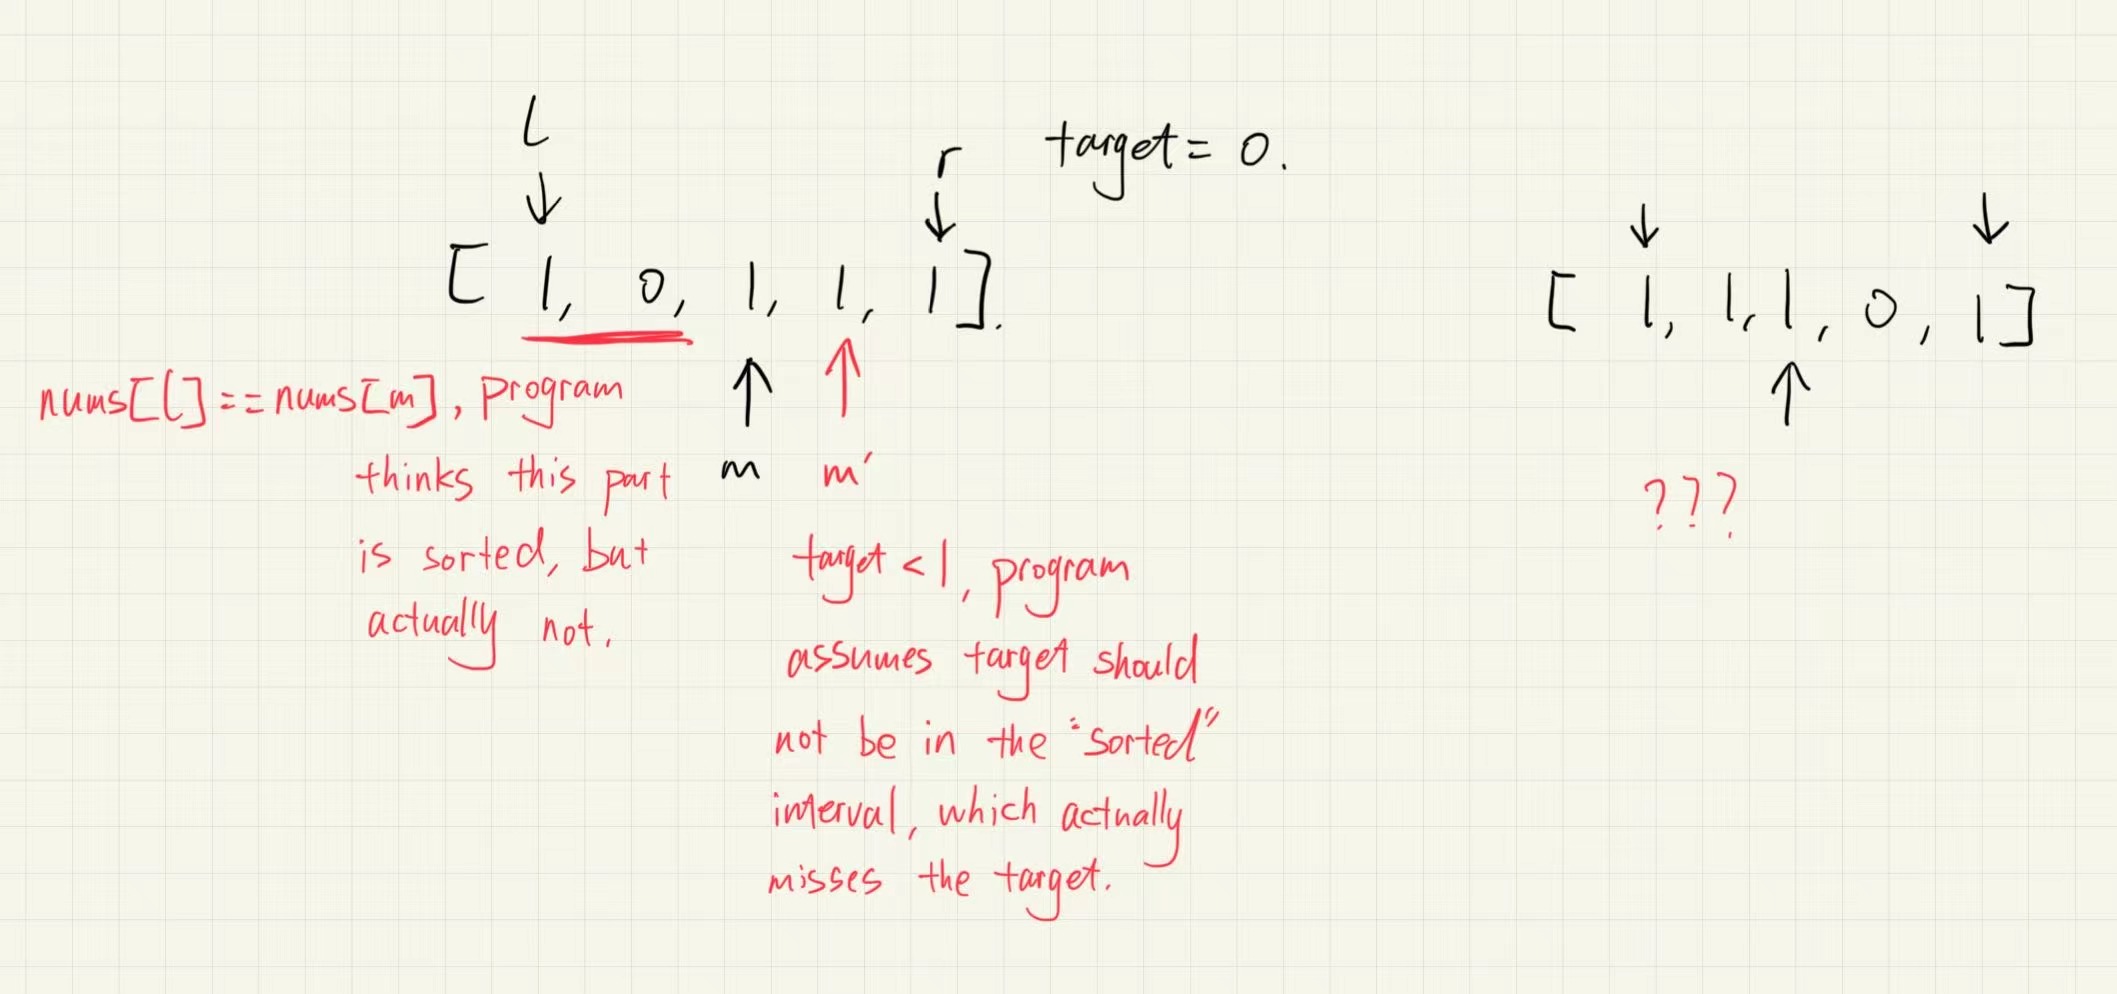 l
r target = 0.
[ 1, 0, 1, 1, 1 ].
[ 1, 1, 1, 0, 1 ]
nums[l]==nums[m], program
thinks this part
is sorted, but
actually not.
m
m′
target < 1, program
assumes target should
not be in the "sorted"
interval, which actually
misses the target.
???